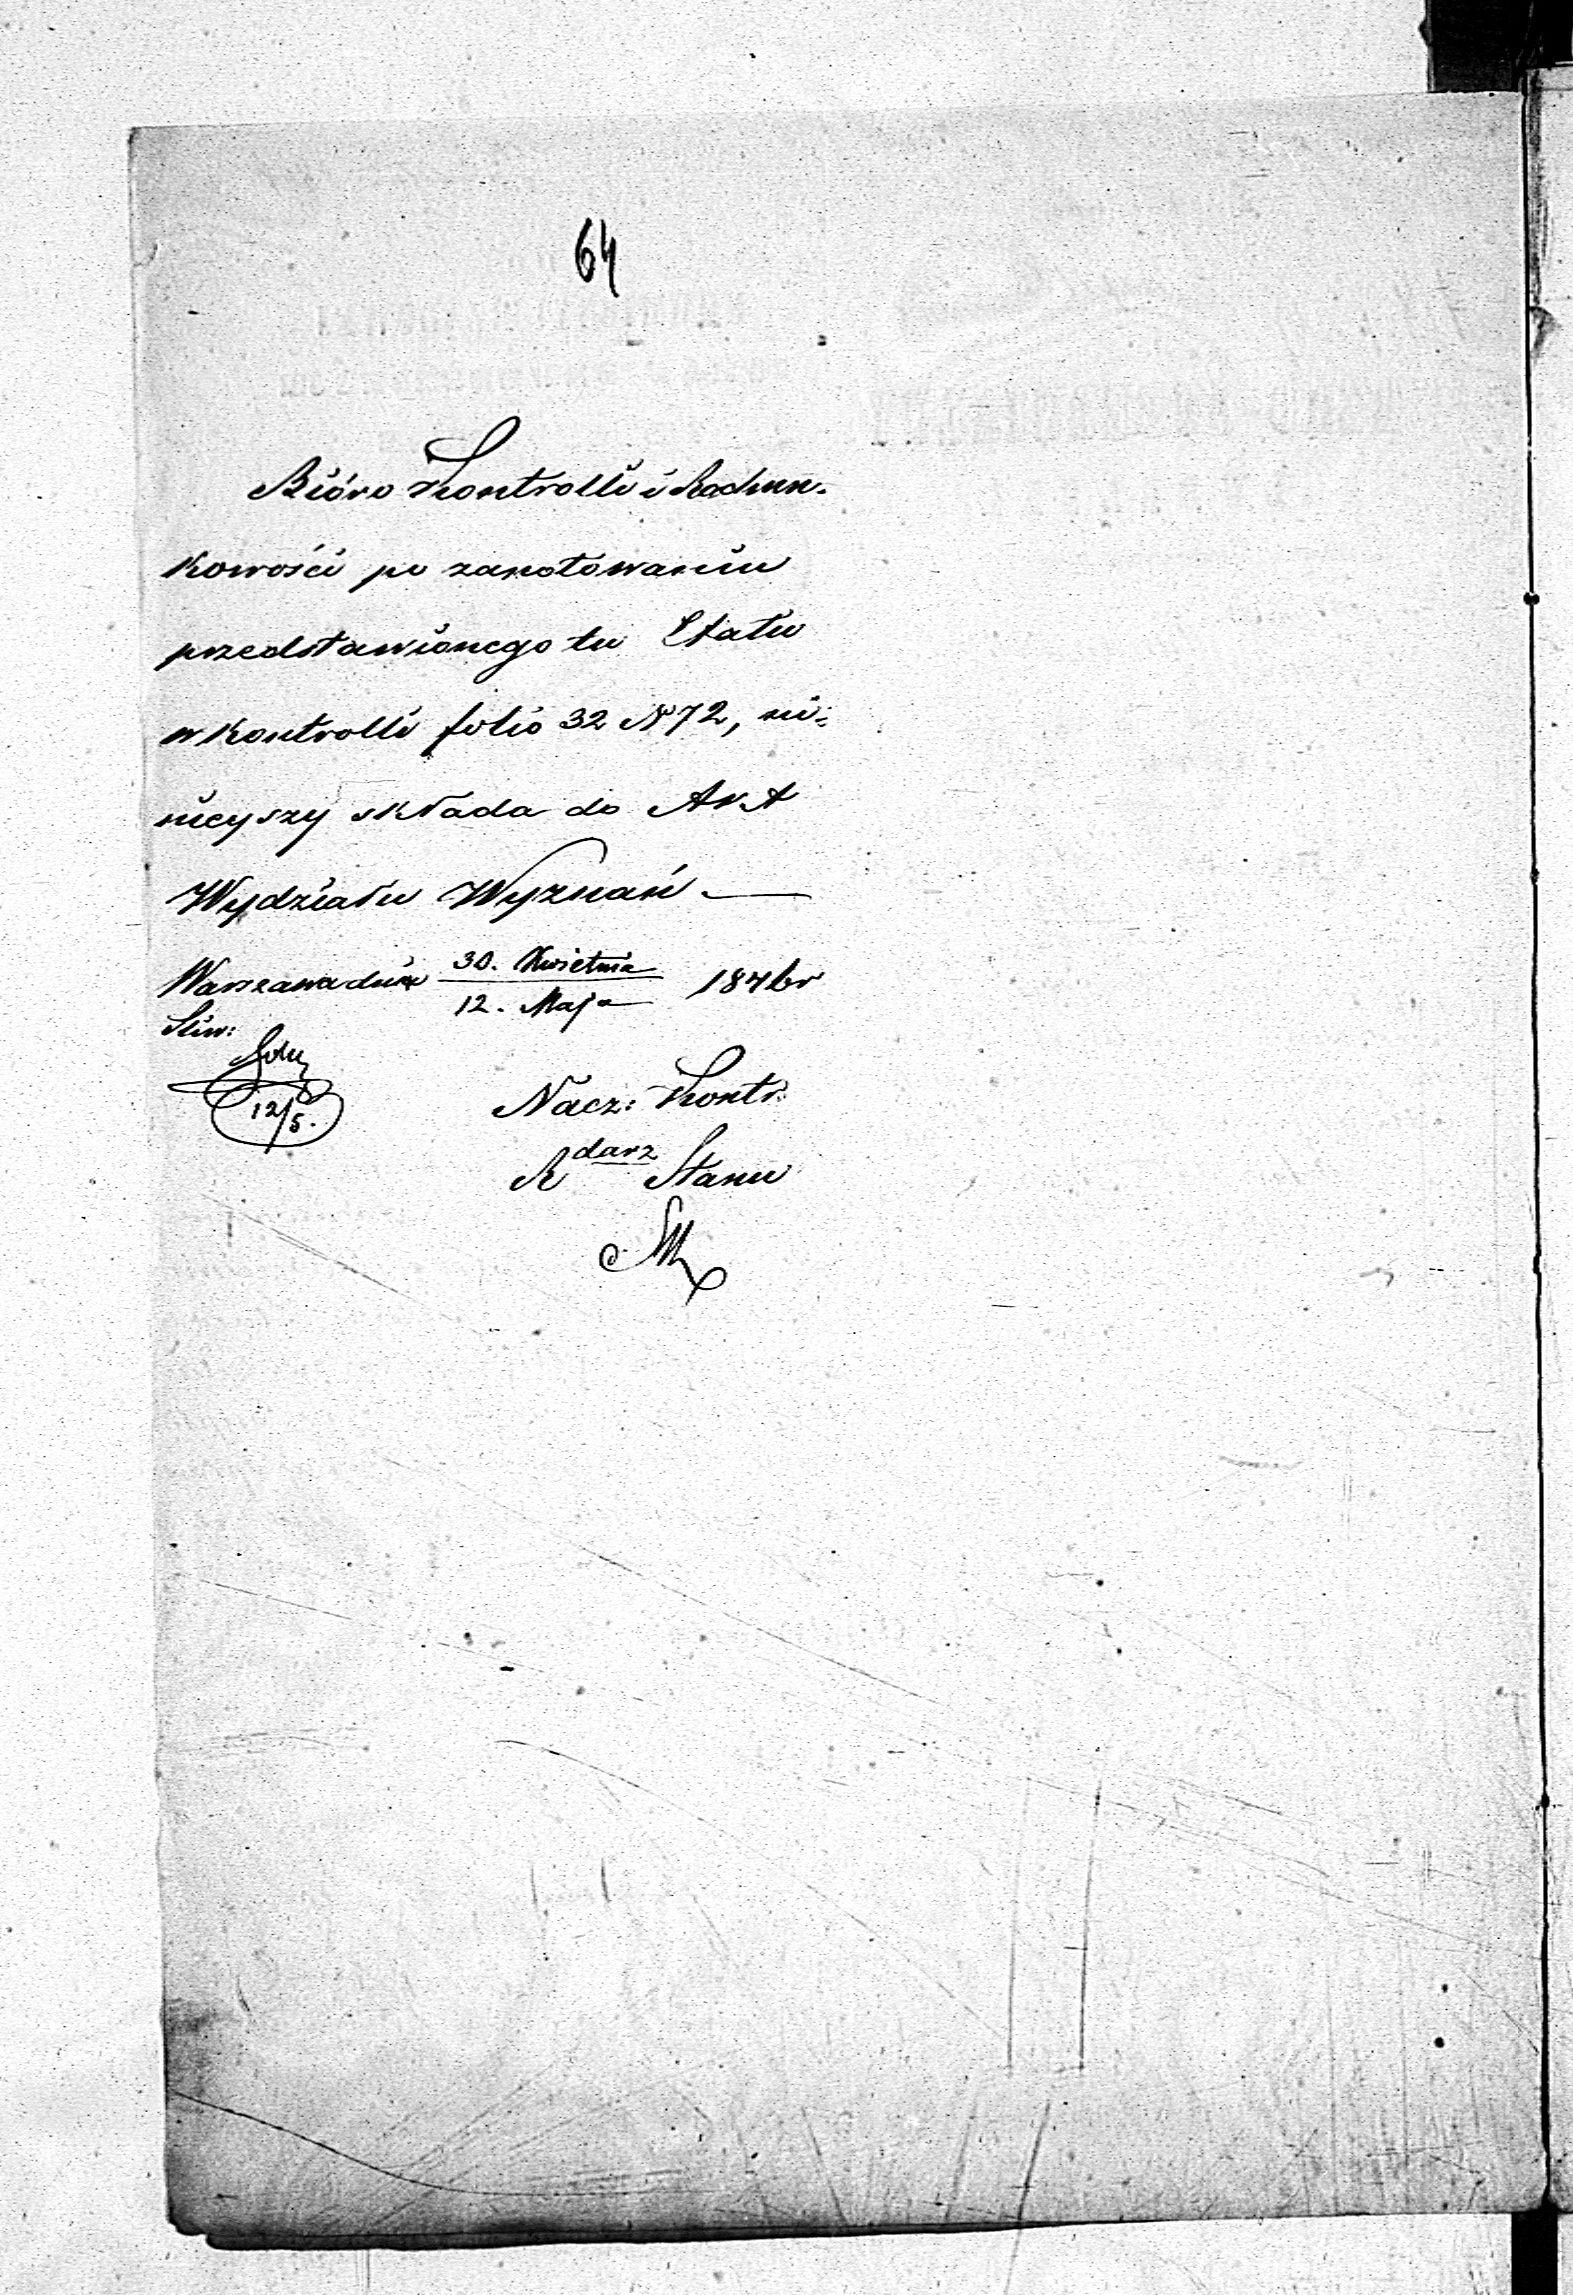 64
Bióro Kontrolli i Rachun-
kowości po zanotowaniu
przedstawionego tu Etatu
w Kontrolli folio 32 N 72, ni-
nieyszy składa do Akt
Wydziału Wyznań —
Warszawa dnia 30. Kwietnia / 12. Maja 1846 r
12/5.
Nacz: Kontr:
Rdarz Stanu